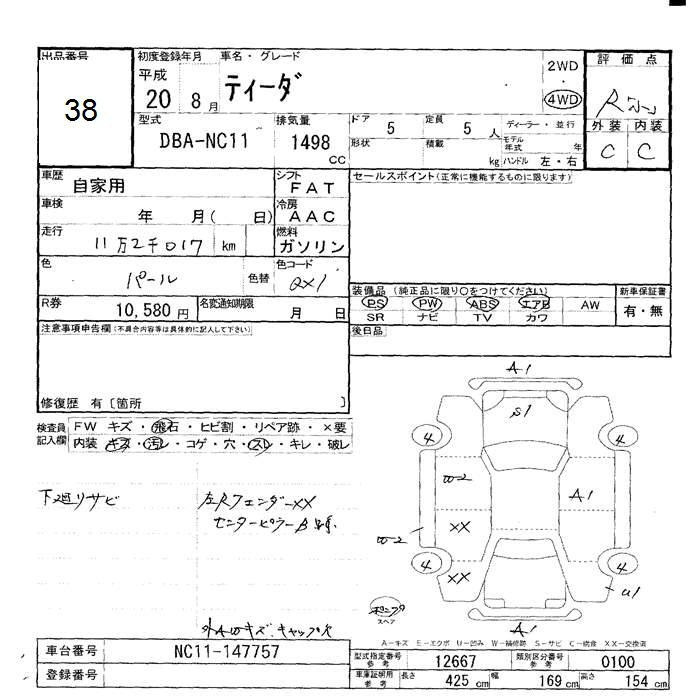 出品番号
38
初度登録年月
平成
20 8 月
車名・グレード
ティーダ
2WD
・
4WD
評価点
外装 内装
C C
型式
DBA-NC11
排気量
1498
CC
ドア
5
定員
5 人
ディーラー・並行
形状
積載
kg
モデル年式
年
ハンドル 左・右
車歴
自家用
シフト
FAT
車検
年 月( 日)
冷房
AAC
走行
11万2千017 km
燃料
ガソリン
色
パール
色替
色コード
QX1
R券
10,580 円
名変通知期限
月 日
セールスポイント(正常に機能するものに限ります)
装備品 (純正品に限り○をつけてください)
PS PW ABS エアB AW
SR ナビ TV カワ
新車保証書
有・無
後日品
注意事項申告欄(不具合内容等は具体的に記入して下さい)
修復歴 有〔箇所 〕
検査員記入欄
FW キズ・飛石・ヒビ割・リペア跡・×要
内装 キズ・汚レ・コゲ・穴・スレ・キレ・破レ
下廻リサビ
左Rフェンダーxx
センターピラー
A1
S1
4
4
W2
A1
XX
W2
4
XX
4
U1
スペア
A1
キズ、キャップ欠
A－キズ E－エクボ U－凹み W－補修跡 S－サビ C－腐食 XX－交換済
車台番号
NC11-147757
登録番号
型式指定番号
参考
12667
類別区分番号
参考
0100
車庫証明用
参考
長さ
425 cm
幅
169 cm
高さ
154 cm